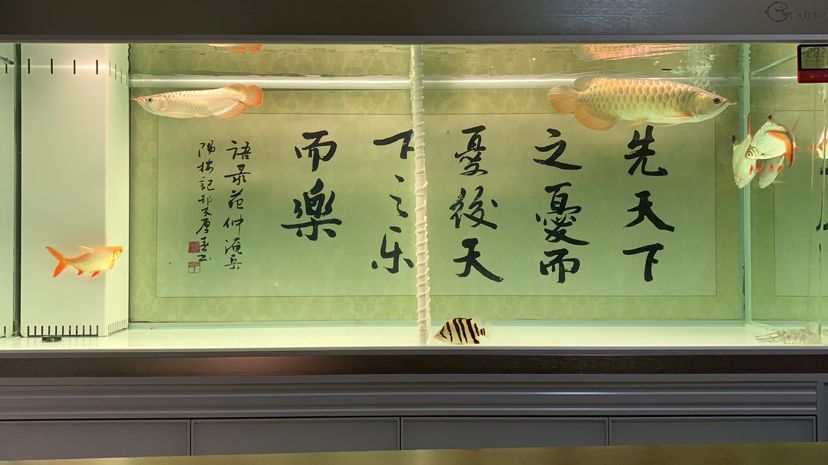 先天下
之憂而
憂後天
下之乐
而樂
語录范仲淹岳
陽楼記